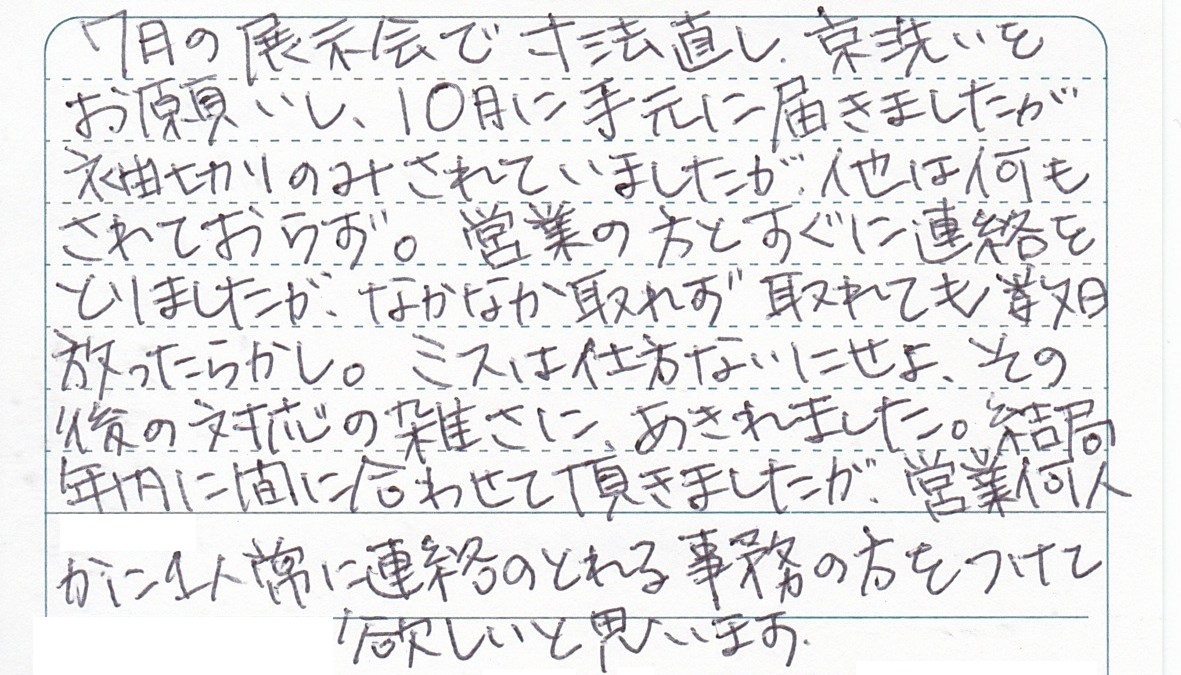 7月の展示会で寸法直し、京洗いを
お願いし、10月に手元に届きましたが
袖切りのみされていましたが、他は何も
されておらず。営業の方とすぐに連絡を
とりましたが、なかなか取れず取れても数日
放ったらかし。ミスは仕方ないにせよ、その
後の対応の雑さに、あきれました。結局
年内に間に合わせて頂きましたが、営業何人
かに1人常に連絡のとれる事務の方をつけて
欲しいと思います。